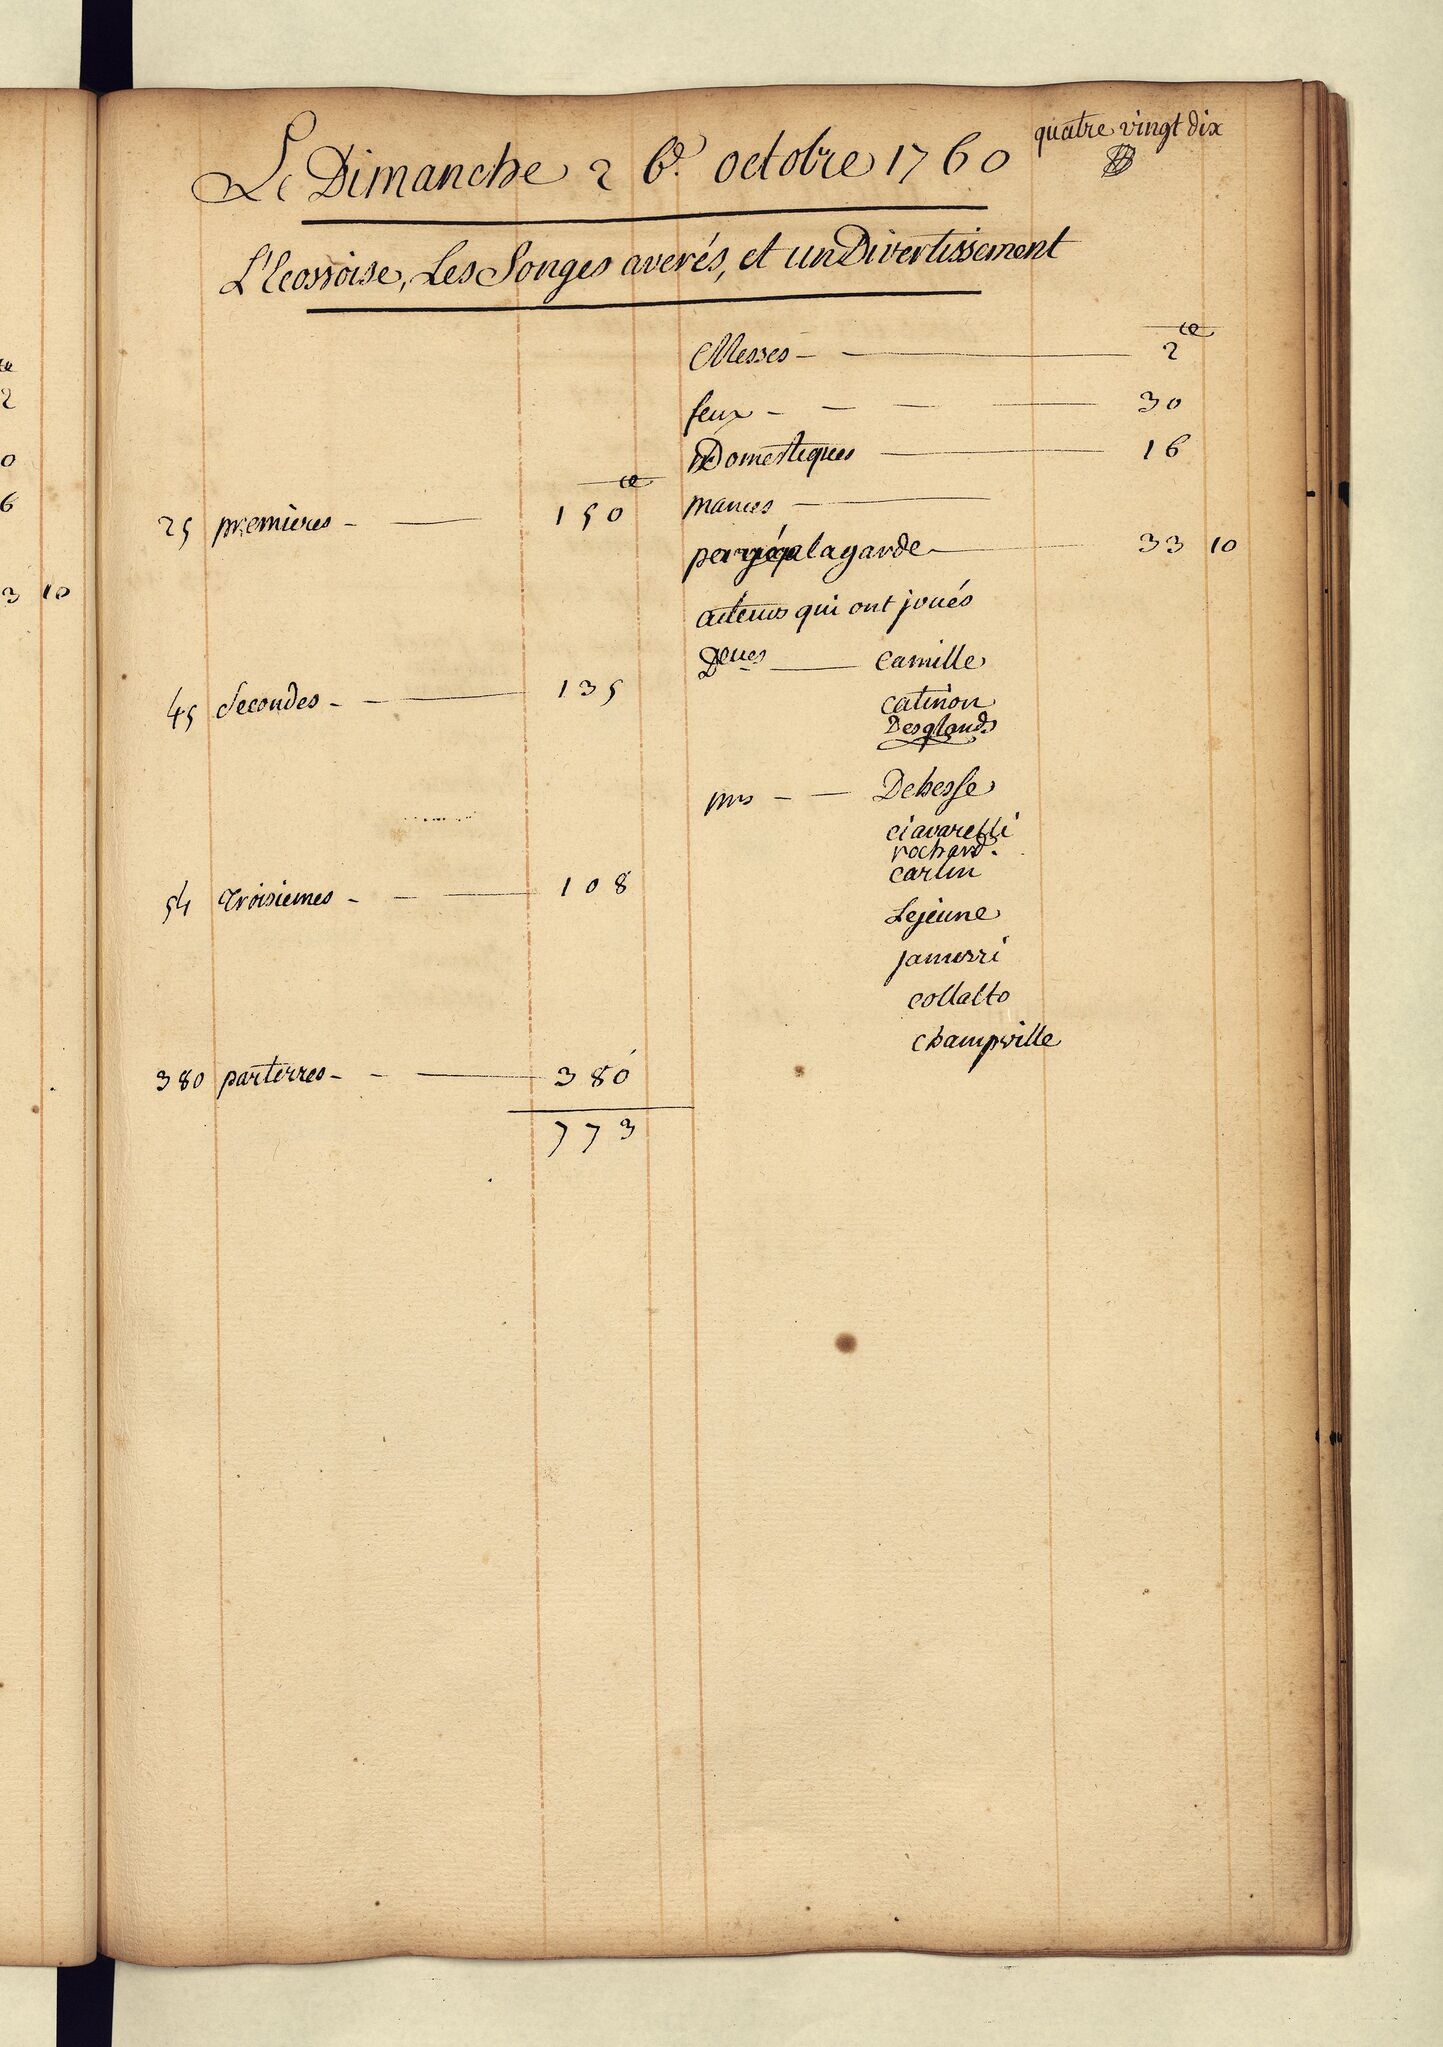 quatre vingt dix
Le Dimanche 26e. octobre 1760
L'Ecossoise, Les Songes averés, et un Divertissement
Messes - — 2
feux - - - — 30
Domestiques — 16
25 premieres - — 150
mances —
payé a la garde — 33 10
acteurs qui ont joués
Delles — Camille
45 Secondes - - — 135
catinon
Desglands
Mrs - — Dehesse
ciavarelli
rochard.
carlin
54 Troisiemes - - — 108
Lejeune
janvrri
collalto
champville
380 parterres - - — 380
773
2
0
6
3 10